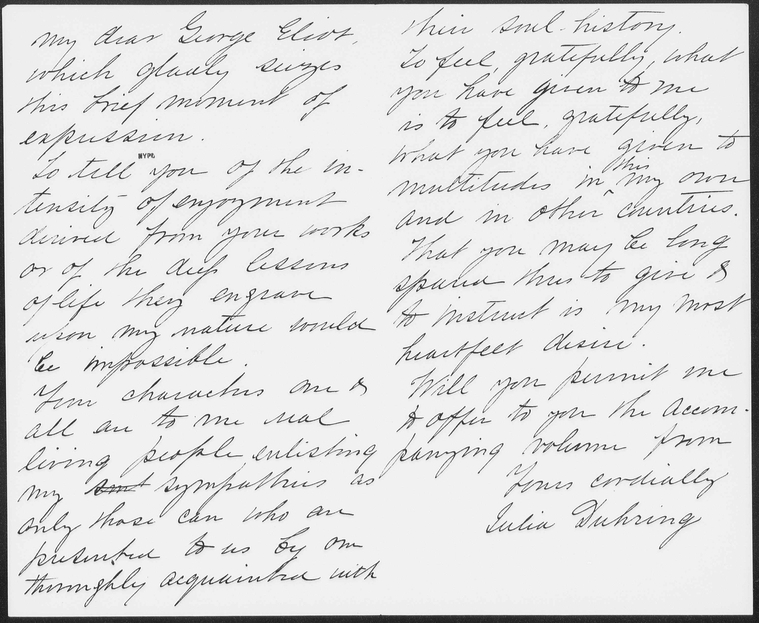 my dear George Eliot,
which gladly seizes
this brief moment of
expression.
NYPL
To tell you of the in-
tensity of enjoyment
derived from your works
or of the deep lessons
of life they engrave
upon my nature would
be impossible.
Your characters one &
all are to me real
living people enlisting
my sympathies as
only those can who are
presented to us by one
thoroughly acquainted with
their soul-history.
To feel, gratefully, what
you have given to me
is to feel, gratefully,
what you have given to
multitudes in this my own
and in other countries.
That you may be long
spared thus to give &
to instruct is my most
heartfelt desire.
Will you permit me
to offer to you the accom-
panying volume from
Yours cordially
Julia Duhring